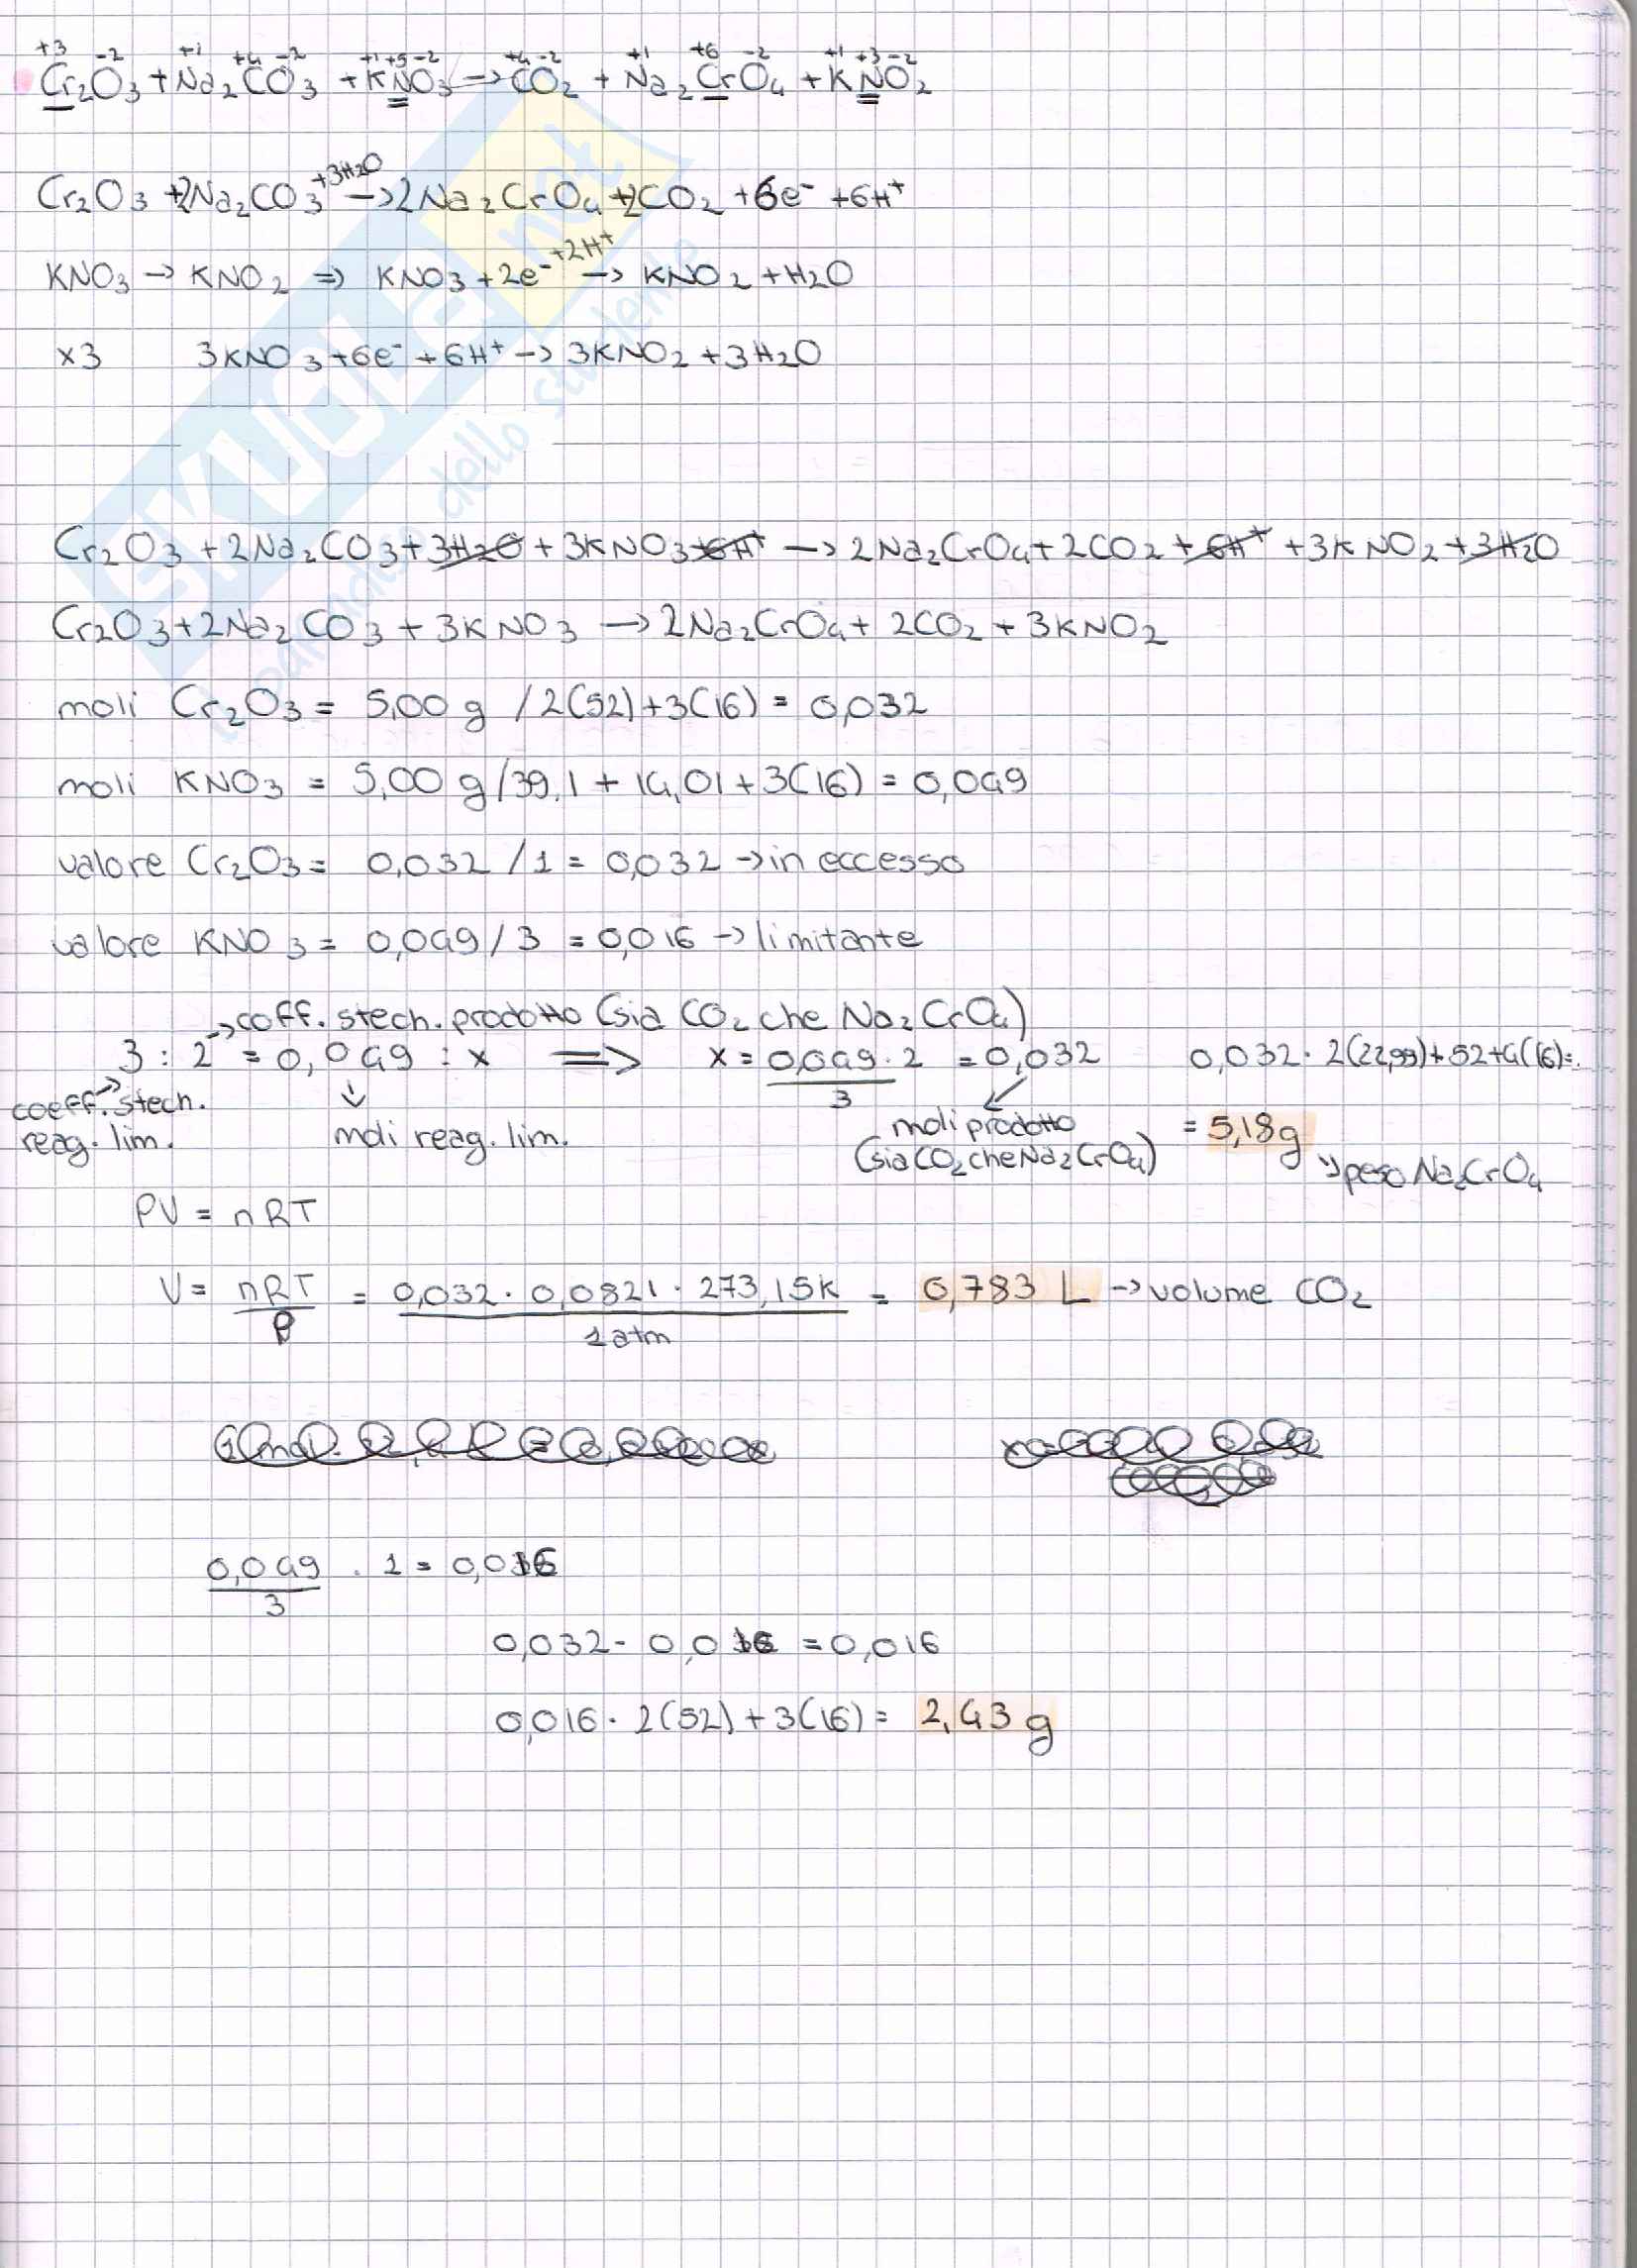 +3 -2 +1 +4 -2 +1 +5 -2 +4 -2 +1 +6 -2 +1 +3 -2
Cr2O3 + Na2CO3 + KNO3 → CO2 + Na2CrO4 + KNO2
Cr2O3 + 2Na2CO3 +3H2O → 2Na2CrO4 + 2CO2 + 6e- + 6H+
KNO3 → KNO2 ⇒ KNO3 + 2e- +2H+ → KNO2 + H2O
x3 3KNO3 + 6e- + 6H+ → 3KNO2 + 3H2O
Cr2O3 + 2Na2CO3 + 3H2O + 3KNO3 + 6H+ → 2Na2CrO4 + 2CO2 + 6H+ + 3KNO2 + 3H2O
Cr2O3 + 2Na2CO3 + 3KNO3 → 2Na2CrO4 + 2CO2 + 3KNO2
moli Cr2O3 = 5,00 g / 2(52)+3(16) = 0,032
moli KNO3 = 5,00 g / 39,1 + 14,01 + 3(16) = 0,049
valore Cr2O3 = 0,032 / 1 = 0,032 → in eccesso
valore KNO3 = 0,049 / 3 = 0,016 → limitante
→ coff. stech. prodotto (sia CO2 che Na2CrO4)
3 : 2 = 0,049 : x ⇒ x = 0,049 · 2 / 3 = 0,032 0,032 · 2(22,99)+52+4(16)=
coeff. stech. reag. lim.
moli reag. lim.
moli prodotto (sia CO2 che Na2CrO4)
= 5,18g → peso Na2CrO4
PV = nRT
V = nRT / P = 0,032 · 0,0821 · 273,15K / 1 atm = 0,783 L → volume CO2
0,049 / 3 · 1 = 0,016
0,032 - 0,016 = 0,016
0,016 · 2(52) + 3(16) = 2,43 g
SKUOLA.net
il paradiso dello studente